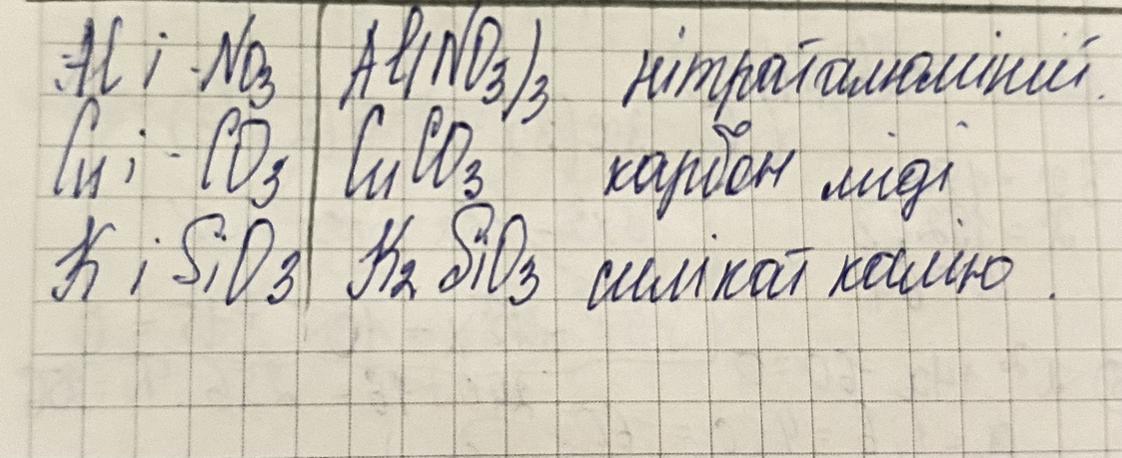 Al і NO3 Al(NO3)3 нітрат алюміній.
Cu і CO3 CuCO3 карбон міді
K і SiO3 K2SiO3 силікат калію.